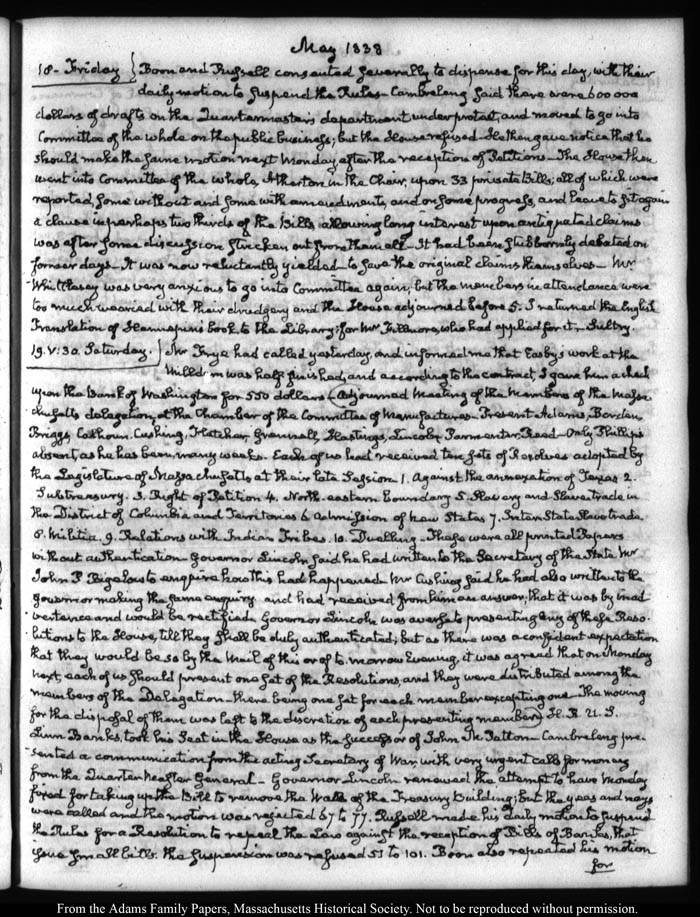 May 1838
18. Friday } Boon and Russell consented severally to dispense for this day, with their
daily motion to suspend the Rules— Cambreleng said there were 600 000
dollars of drafts on the Quartermaster's department under protest, and moved to go into
Committee of the whole on the public business; but the House refused— He then gave notice that he
should make the same motion next Monday after the reception of Petitions— The House then
went into Committee of the whole, Atherton in the Chair, upon 33 private Bills; all of which were
reported, some without and some with amendments, and on some progress, and leave to sit again
a clause in perhaps two thirds of the Bills allowing long interest upon antiquated claims
was after some discussion stricken out from them all— It had been stubbornly debated on
former days— It was now reluctantly yielded to save the original claims themselves— Mr
Whittlesey was very anxious to go into Committee again, but the members in attendance were
too much wearied with their drudgery and the House adjourned before 5. I returned the English
Translation of book to the Library, for Mr Fillmore, who had applied for it. Sultry.
19. V:30. Saturday. } Mr Frye had called yesterday, and informed me that Easby's work at the
Mill was half finished, and according to the contract, I gave him a check
upon the Bank of Washington for 550 dollars— Adjourned Meeting of the Members of the Massa-
chusetts delegation, at the Chamber of the Committee of Manufactures— Present Adams, Borden
Briggs, Calhoun, Cushing, Fletcher, Grennell, Hastings, Lincoln, Parmenter, Reed— Only Phillips
absent, as he has been many weeks. Each of us had received ten sets of Resolves adopted by
the Legislature of Massachusetts at their late Session 1. Against the annexation of Texas 2.
Subtreasury. 3. Right of Petition 4. North-eastern boundary 5. Slavery and Slave trade in
the District of Columbia and Territories 6 Admission of new States 7. Inter State Slave trade
8. Militia. 9. Relations with Indian Tribes. 10. Duelling— These were all printed Papers
without authentication— Governor Lincoln said he had written to the Secretary of the State Mr
John P Bigelow to enquire how this had happened— Mr Cushing said he had also written to the
Governor making the same enquiry and had received from him an answer, that it was by inad-
vertence and would be rectified. Governor Lincoln was averse to presenting any of these Reso-
lutions to the House, till they shall be duly authenticated; but as there was a confident expectation
that they would be so by the Mail of this or of to-morrow Evening, it was agreed that on Monday
next, each of us should present one set of the Resolutions, and they were distributed among the
members of the Delegation— there being one set for each member excepting one— The moving
for the disposal of them was left to the discretion of each presenting member) H. R. U. S.
Linn Banks, took his Seat in the House as the Successor of John M. Patton— Cambreleng pre-
sented a communication from the acting Secretary of War, with very urgent calls for money
from the Quarter Master General— Governor Lincoln renewed the attempt to have Monday
fixed for taking up the Bill to remove the Walls of the Treasury building; but the yeas and nays
were called and the motion was rejected 67 to 77. Russell made his daily motion to suspend
the Rules for a Resolution to repeal the Law against the reception of Bills of Banks, that
issue small bills. the suspension was refused 51 to 101. Boon also repeated his motion
for
From the Adams Family Papers, Massachusetts Historical Society. Not to be reproduced without permission.